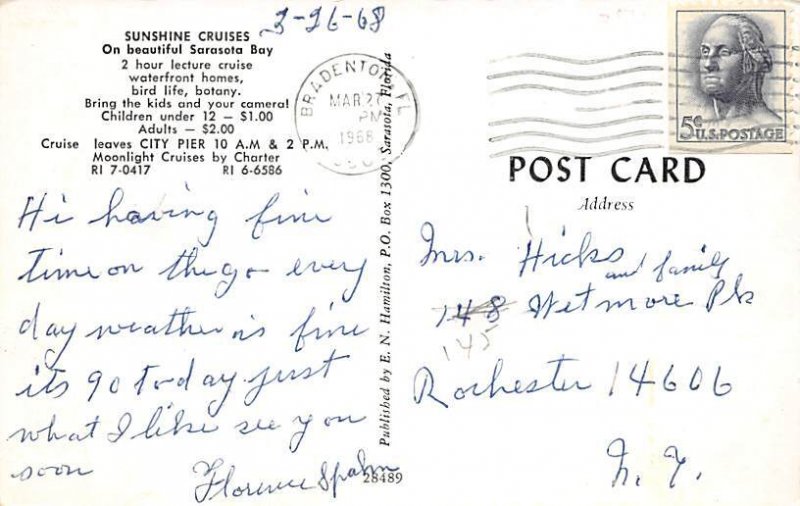 3-26-68
SUNSHINE CRUISES
On beautiful Sarasota Bay
2 hour lecture cruise
waterfront homes,
bird life, botany.
Bring the kids and your camera!
Children under 12 — $1.00
Adults — $2.00
Cruise leaves CITY PIER 10 A.M & 2 P.M.
Moonlight Cruises by Charter
RI 7-0417 RI 6-6586
Hi having fine
time on the go - every
day weather is fine
its 90 today just
what I like see you
soon
Florence Spahn
28489
Published by E. N. Hamilton, P.O. Box 1300, Sarasota, Florida
BRADENTON, FL
MAR 27
PM
1968
5¢ U.S. POSTAGE
POST CARD
Address
Mrs. Hicks and family
148 Wetmore Pk
145
Rochester 14606
N. Y.